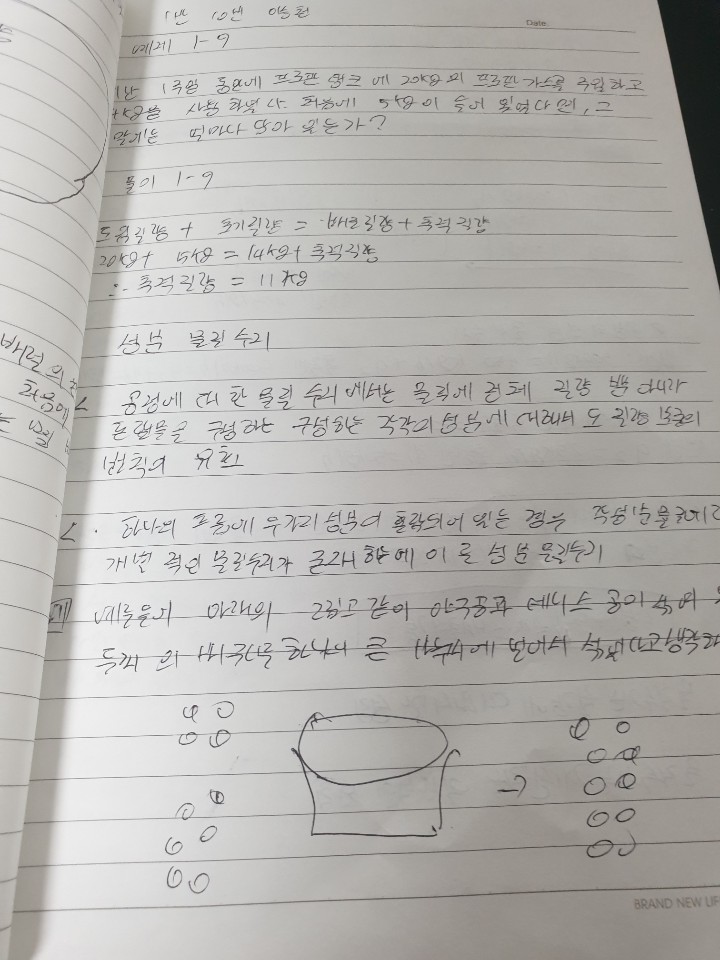 1반 10번
Date.
예제 1-9
1주일 동안에 프로판 탱크에 20kg의 프로판 가스를 주입하고
사용 하였다. 처음에 5kg이 들어 있었다면, 그
얼마나 남아 있는가?
풀이 1-9
도입질량 + 초기질량 = 배출질량 + 축적질량
20kg + 5kg = 14kg + 축적질량
∴ 축적질량 = 11kg
성분 물질수지
공정에 대한 물질 수지에서는 물질에 전체 질량 뿐 아니라
구성하는 구성하는 각각의 성분에 대해서도 질량 보존의
법칙의
하나의 흐름에 우가지 성분이 혼합되어 있는 경우 각성분
개별적인 물질수지가 존재 하는데 이를 성분 물질수지
예를들어 아래의 그림과 같이 야구공과 테니스 공이 섞여
두개의 바구니를 하나의 큰 바구니에 넣어서 섞는다고 생각
배럴의
처음에
BRAND NEW LIF